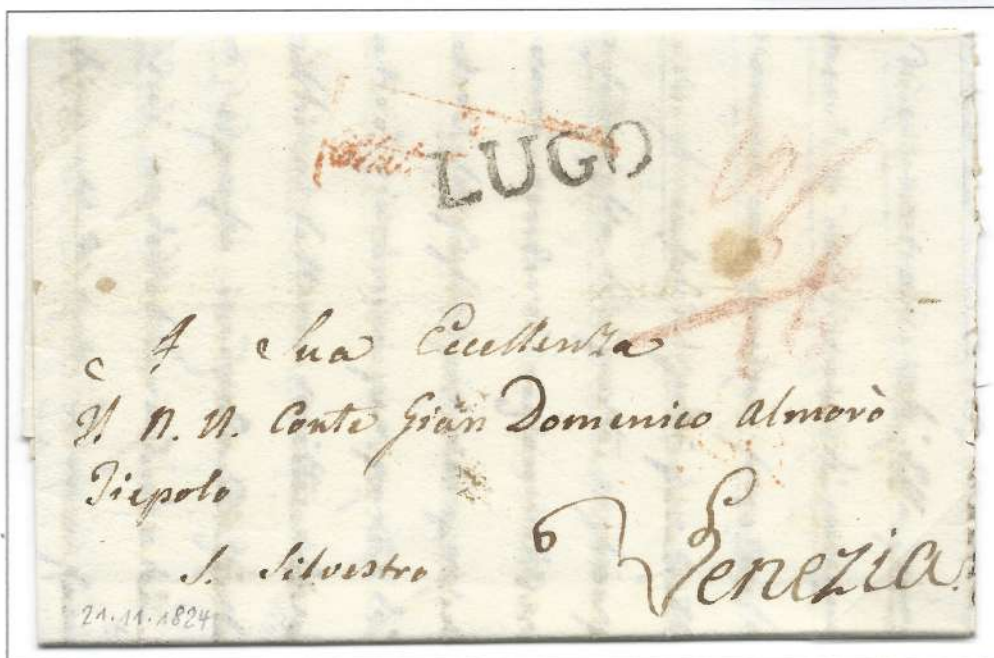 LUGO
A Sua Eccellenza
Il N. H. Conte Gian Domenico Almorò
Tiepolo
S. Silvestro
Venezia
21.11.1824